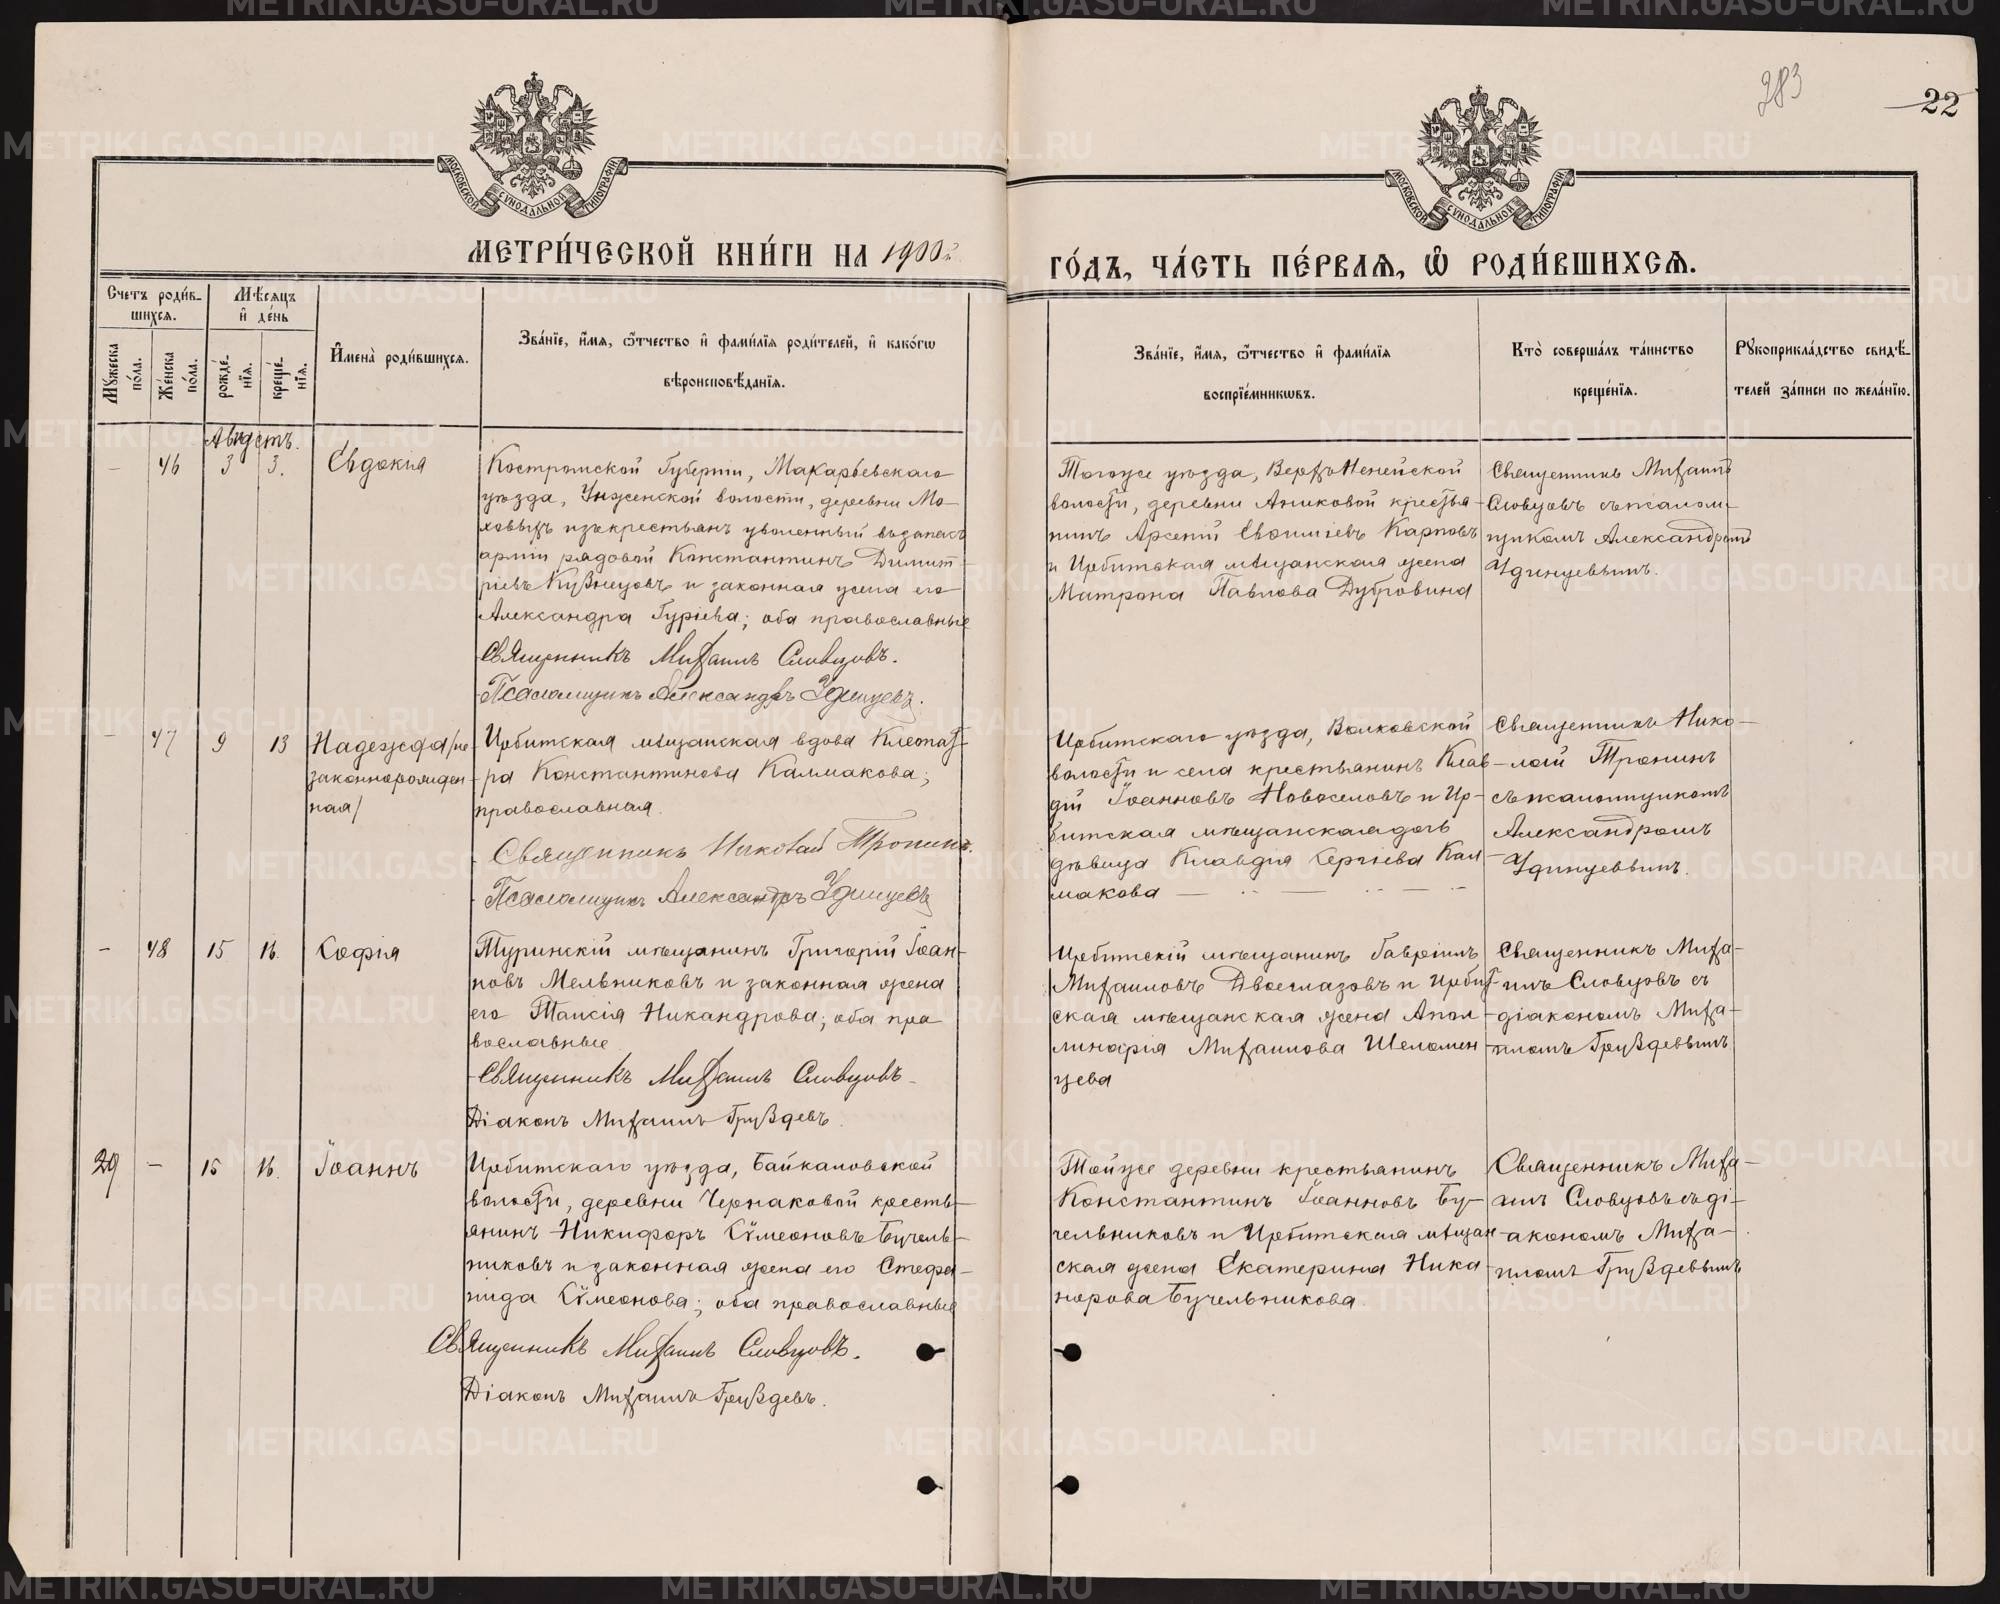 283
22
МОСКОВСКОЙ СУНОДАЛЬНОЙ ТИПОГРАФІИ
МОСКОВСКОЙ СУНОДАЛЬНОЙ ТИПОГРАФІИ
МЕТРИ́ЧЕСКОЙ КНИ́ГИ НА 1900й
ГО́ДЪ, ЧА́СТЬ ПЕ́РВАѦ, Ѽ РОДИ́ВШИХСѦ.
Счетъ роди́в-
шихсѧ.
Мѣсѧцъ
и҆ де́нь
Мꙋжеска
по́ла.
Же́нска
по́ла.
рожде́-
нїѧ.
креще́-
нїѧ.
И҆мена̀ роди́вшихсѧ.
Зва́нїе, и҆́мѧ, ѻ҆́тчество и҆ фами́лїѧ роди́телей, и҆ како́гѡ
вѣроисповѣ́данїѧ.
Зва́нїе, и҆́мѧ, ѻ҆́тчество и҆ фами́лїѧ
воспрїе́мникѡвъ.
Кто̀ соверша́лъ та́инство
креще́нїѧ.
Рꙋкоприкла́дство свидѣ́-
телей за́писи по жела́нїю.
Августъ.
— 46 3 3. Евдокія
Костромской Губерніи, Макарьевскаго
уѣзда, Унженской волости, деревни Мо-
ховыхъ изъ крестьянъ уволенный въ запасъ
арміи рядовой Константинъ Димит-
ріевъ Кузнецовъ и законная жена его
Александра Гуріева; оба православные
Священникъ Михаилъ Словцовъ.
Псаломщикъ Александръ Удинцевъ.
Тогоже уѣзда, Верхъ-Ненейской
волости, деревни Аниковой крестья-
нинъ Арсеній Евфиміевъ Карповъ
и Ирбитская мѣщанская жена
Матрона Павлова Дубровина
Священникъ Михаилъ
Словцовъ съ псалом-
щикомъ Александромъ
Удинцевымъ.
— 47 9 13 Надежда /не
законнорожден-
ная/
Ирбитская мѣщанская вдова Клеопат-
ра Константинова Калмакова;
православная.
Священникъ Николай Тронинъ.
Псаломщикъ Александръ Удинцевъ
Ирбитскаго уѣзда, Волковской
волости и села крестьянинъ Клав-
дій Іоанновъ Новоселовъ и Ир-
битская мѣщанская дочь
дѣвица Клавдія Сергіева Кал-
макова
Священникъ Нико-
лай Тронинъ
съ псаломщикомъ
Александромъ
Удинцевымъ.
— 48 15 16. Софія
Туринскій мѣщанинъ Григорій Іоан-
новъ Мельниковъ и законная жена
его Таисія Никандрова; оба пра
вославные
Священникъ Михаилъ Словцовъ.
Діаконъ Михаилъ Груздевъ.
Ирбитскій мѣщанинъ Гавріилъ
Михаиловъ Двоеглазовъ и Ирбит-
ская мѣщанская жена Апол-
линарія Михаилова Шеломен-
цева
Священникъ Миха-
илъ Словцовъ съ
діакономъ Миха-
иломъ Груздевымъ
29 — 15 16. Іоаннъ
Ирбитскаго уѣзда, Байкаловской
волости, деревни Чернаковой кресть-
янинъ Никифоръ Сѵмеоновъ Бучель-
никовъ и законная жена его Стефа-
нида Сѵмеонова; оба православные
Священникъ Михаилъ Словцовъ.
Діаконъ Михаилъ Груздевъ.
Тойже деревни крестьянинъ
Константинъ Іоанновъ Бу-
чельниковъ и Ирбитская мѣщан-
ская жена Екатерина Ника-
норова Бучельникова.
Священникъ Миха-
илъ Словцовъ съ ді-
акономъ Миха-
иломъ Груздевымъ